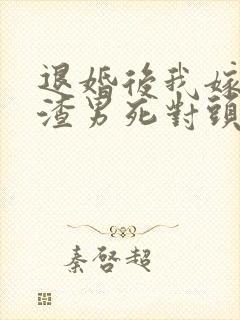 退婚後我嫁
渣男死對頭
秦啓超